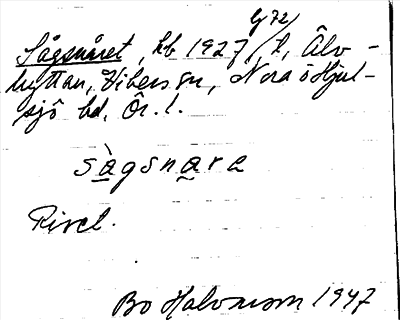 Sågsnåret, hb 1927 G72/h, Älv-
hyttan, Vibers sn, Nora o Hjul-
sjö bd, Ör. l.
sàgsnara
Rivel.
Bo Halvarson 1947